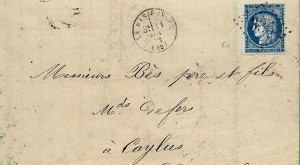 Messieurs Bès père et fils
Mds de fers
à Caylus